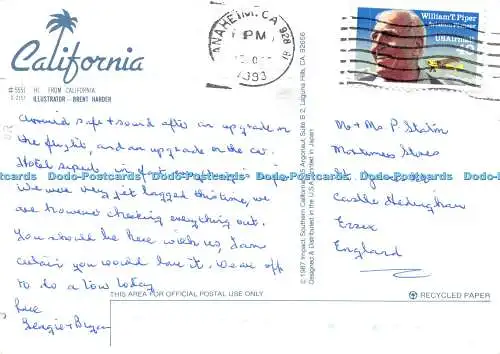 California
#5551 HI FROM CALIFORNIA
ILLUSTRATOR - BRENT HARDER
ANAHEIM, CA 928
PM
1993
William T. Piper
USAirmail
Arrived safe & sound after an upgrade on
the flight, and an upgrade on the car.
Hotel superb in fact everything is
We were very jet lagged this time, we
are however checking everything out.
You should be here with us, I am
certain you would love it. We are off
to to a low today
Love
Georgie & Bryan
© 1987 Impact, Southern California, Argonaut, Suite B-2, Laguna Hills, CA. 92656
Designed & Distributed in the U.S.A. Printed in Japan
Mr & Ms P. Statin
Mortimers Stores
Castle Hedingham
Essex
England
THIS AREA FOR OFFICIAL POSTAL USE ONLY
RECYCLED PAPER
Dodo-Postcards Dodo-Postcards Dodo-Postcards Dodo-Postcards Dodo-Postcards Dodo-Postcards